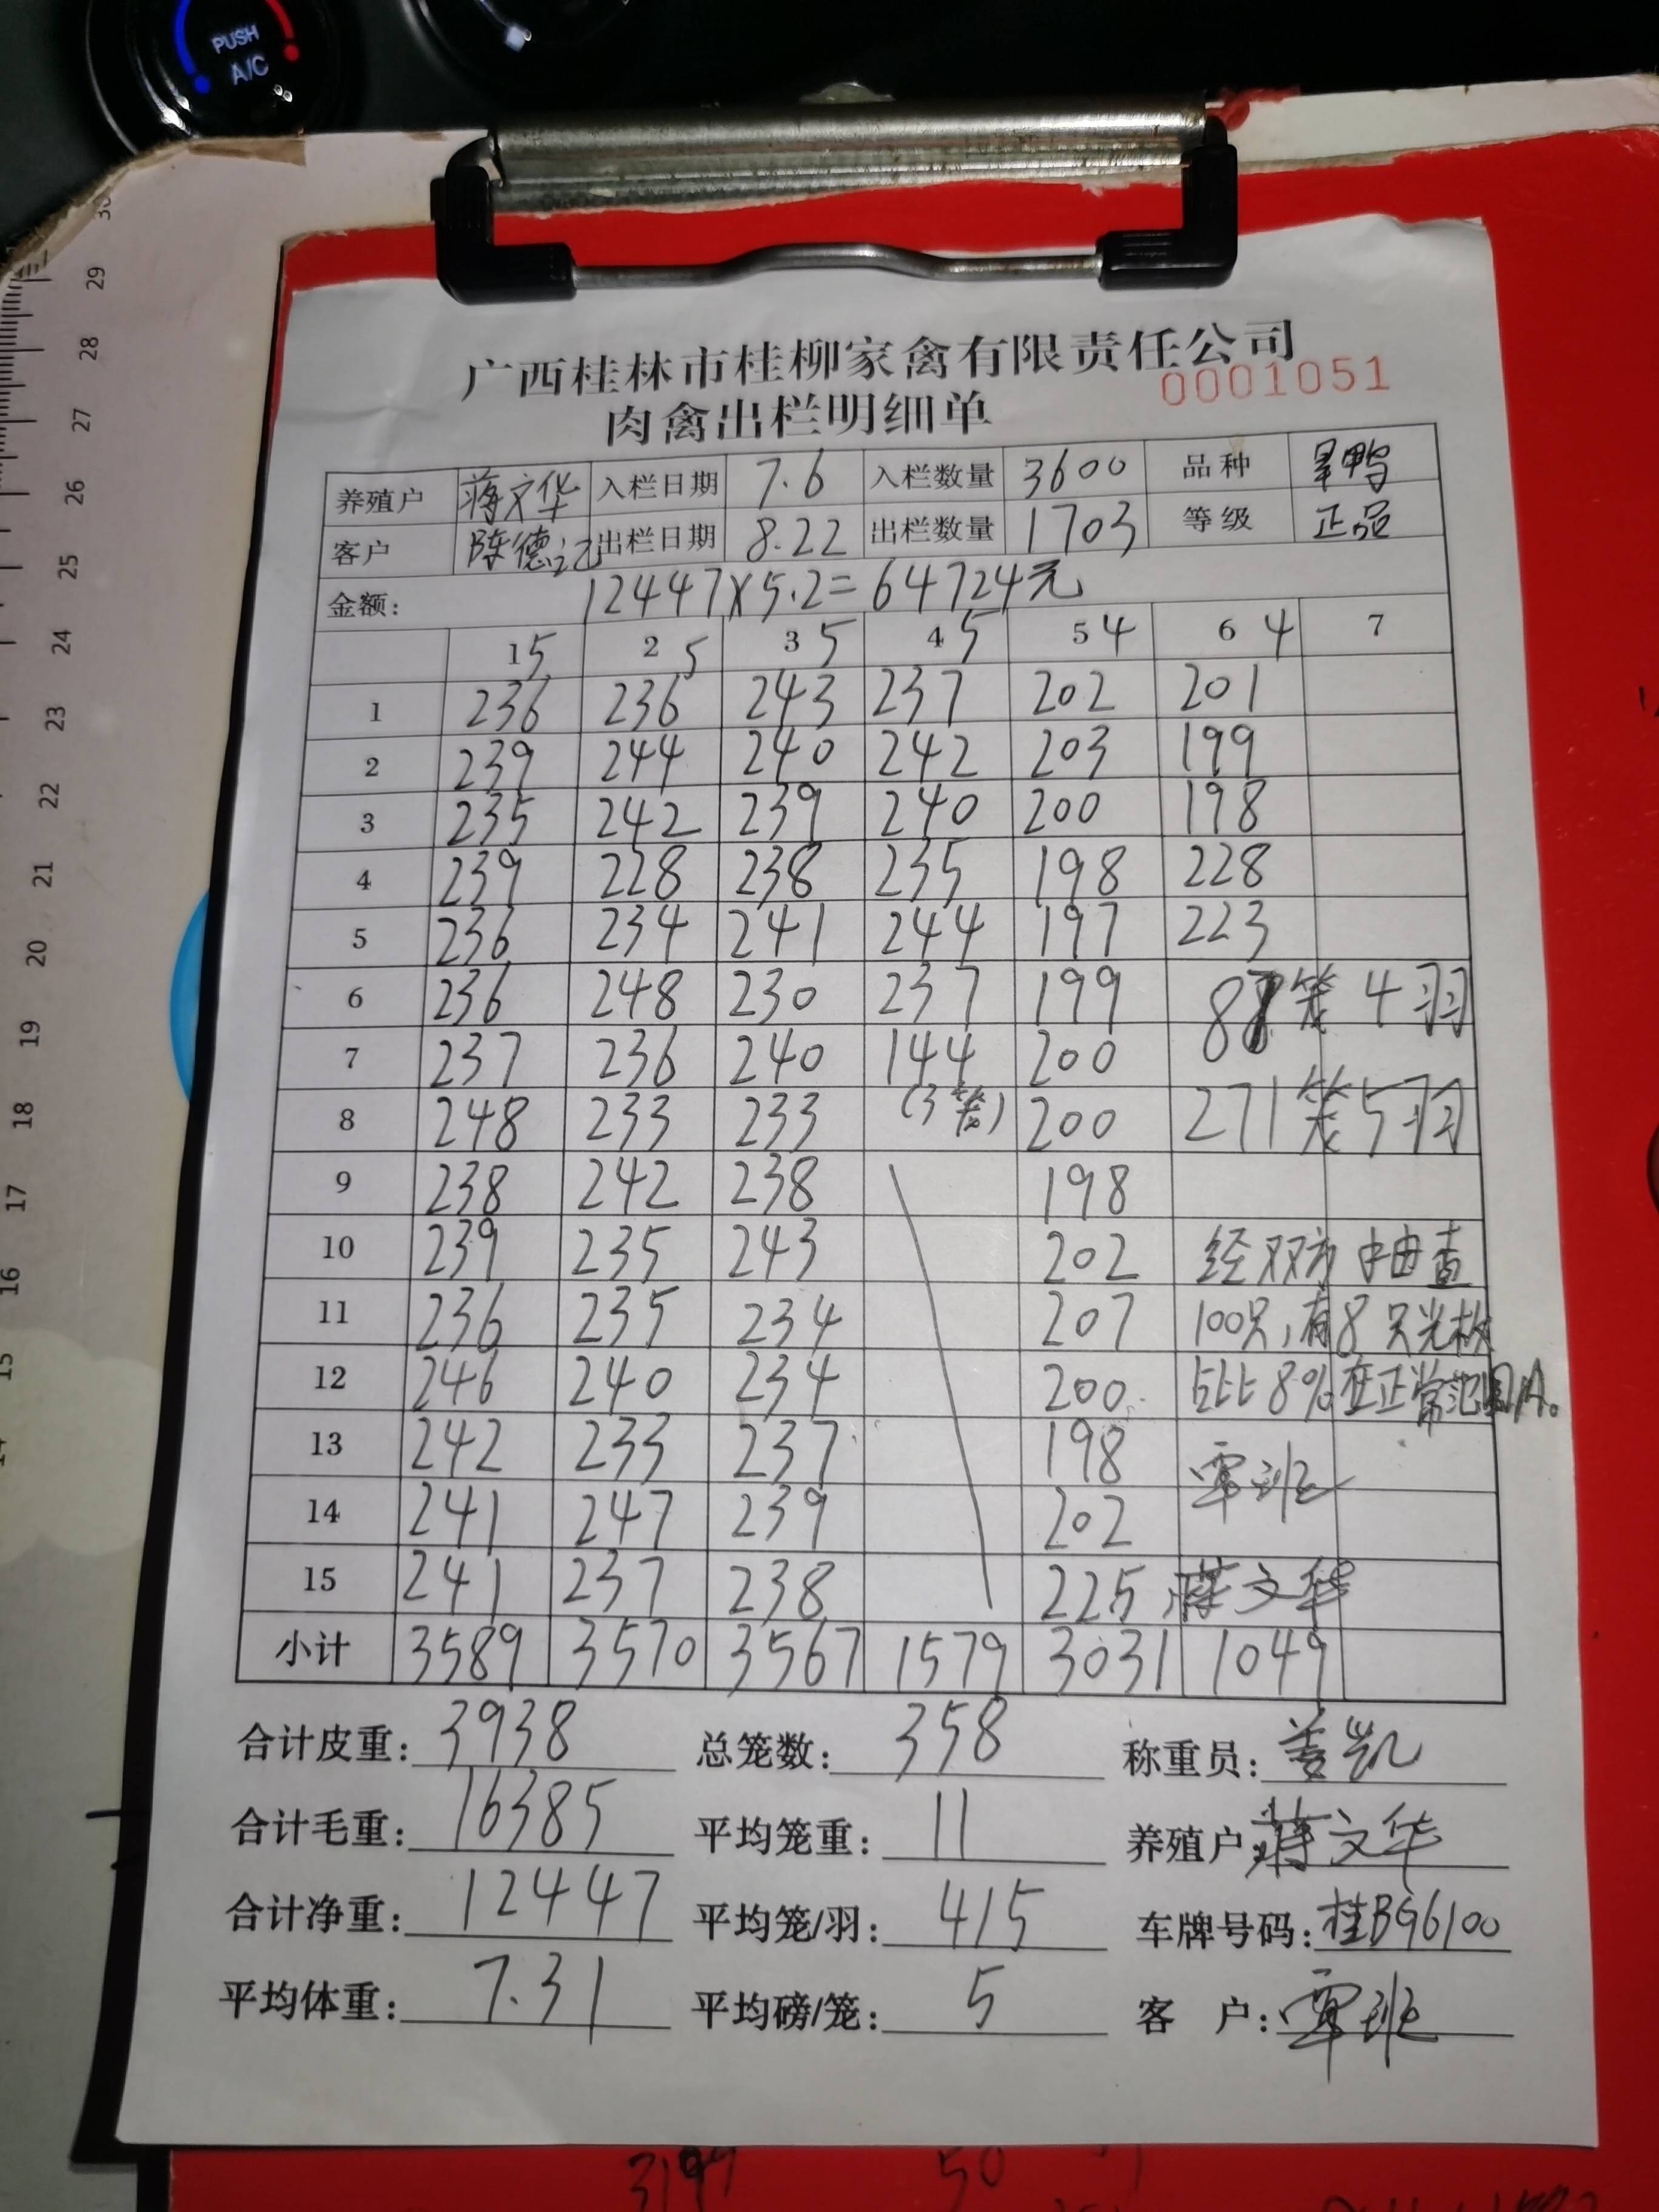 PUSH
A/C
广西桂林市桂柳家禽有限责任公司
0001051
肉禽出栏明细单
养殖户 蒋文华 入栏日期 7.6 入栏数量 3600 品种 旱鸭
客户 陈德记 出栏日期 8.22 出栏数量 1703 等级 正品
金额: 12447×5.2=64724元
1 5 2 5 3 5 4 5 5 4 6 4 7
1 236 236 243 237 202 201
2 239 244 240 242 203 199
3 235 242 239 240 200 198
4 239 228 238 235 198 228
5 236 234 241 244 197 223
6 236 248 230 237 199 87笼4羽
7 237 236 240 144 200
8 248 233 233 (3笼) 200 271笼5羽
9 238 242 238 198
10 239 235 243 202 经双方抽查
11 236 235 234 207 100只,有8只光板
12 246 240 234 200 占比8%在正常范围内。
13 242 233 237 198 覃班
14 241 247 239 202
15 241 237 238 225 蒋文华
小计 3589 3570 3567 1579 3031 1049
合计皮重: 3938 总笼数: 358 称重员: 姜凯
合计毛重: 16385 平均笼重: 11 养殖户 蒋文华
合计净重: 12447 平均笼/羽: 415 车牌号码: 桂BG6100
平均体重: 7.31 平均磅/笼: 5 客 户: 覃班
30
29
28
27
26
25
24
23
22
21
20
19
18
17
16
15
14
50